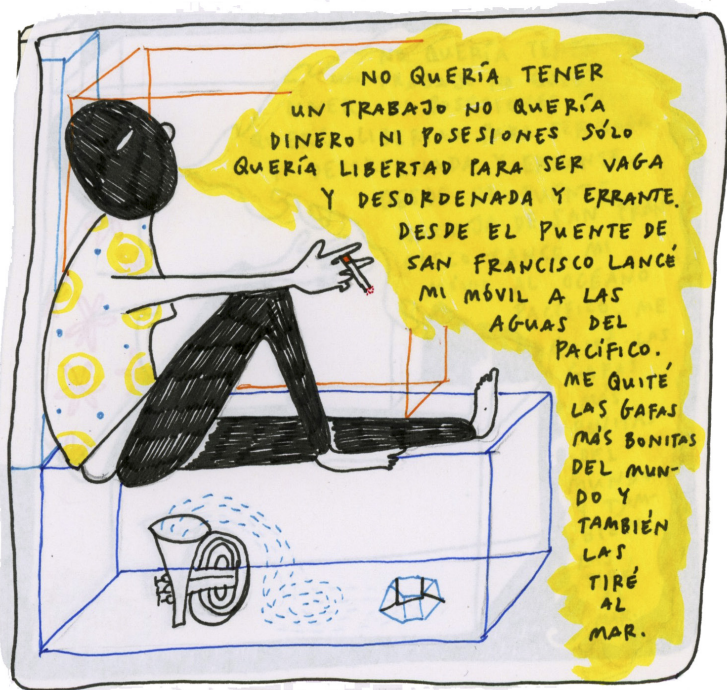 NO QUERÍA TENER
UN TRABAJO NO QUERÍA
DINERO NI POSESIONES SÓLO
QUERÍA LIBERTAD PARA SER VAGA
Y DESORDENADA Y ERRANTE.
DESDE EL PUENTE DE
SAN FRANCISCO LANCÉ
MI MÓVIL A LAS
AGUAS DEL
PACÍFICO.
ME QUITÉ
LAS GAFAS
MÁS BONITAS
DEL MUN-
DO Y
TAMBIÉN
LAS
TIRÉ
AL
MAR.